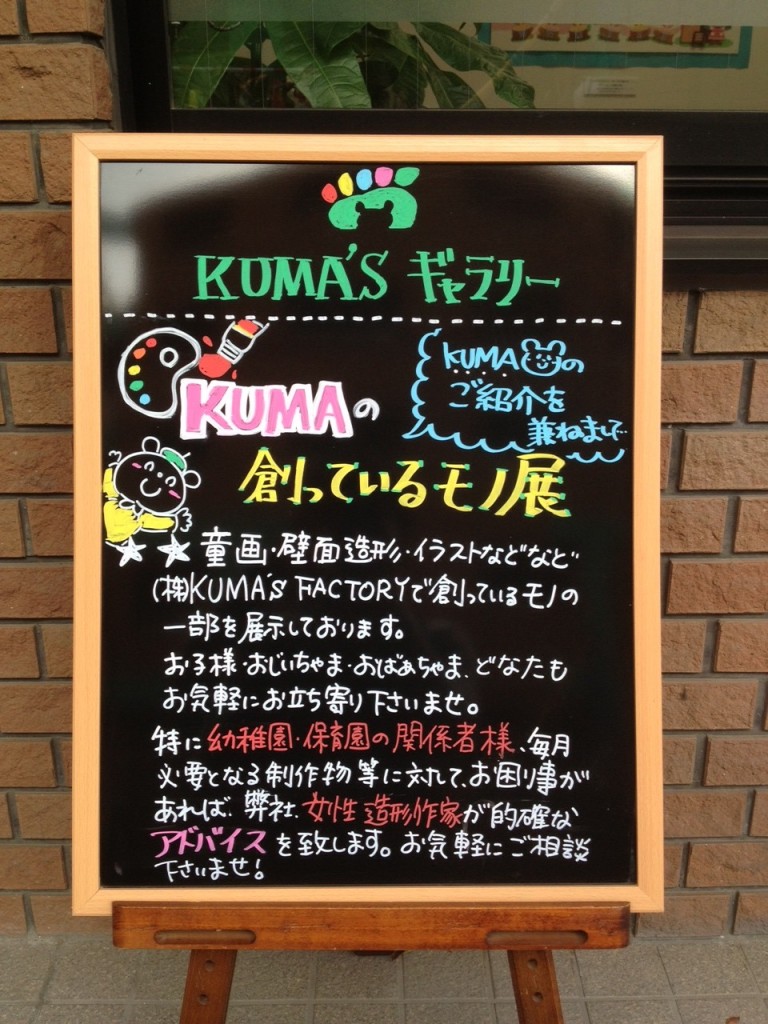 KUMA'S ギャラリー
KUMAの
ご紹介を
兼ねまして…
KUMAの
創っているモノ展
童画・壁面造形・イラストなどなど
(株)KUMA'S FACTORYで創っているモノの
一部を展示しております。
お子様・おじいちゃま・おばあちゃま、どなたも
お気軽にお立ち寄り下さいませ。
特に幼稚園・保育園の関係者様、毎月
必要となる制作物等に対して、お困り事が
あれば、弊社、女性造形作家が的確な
アドバイスを致します。お気軽にご相談
下さいませ!